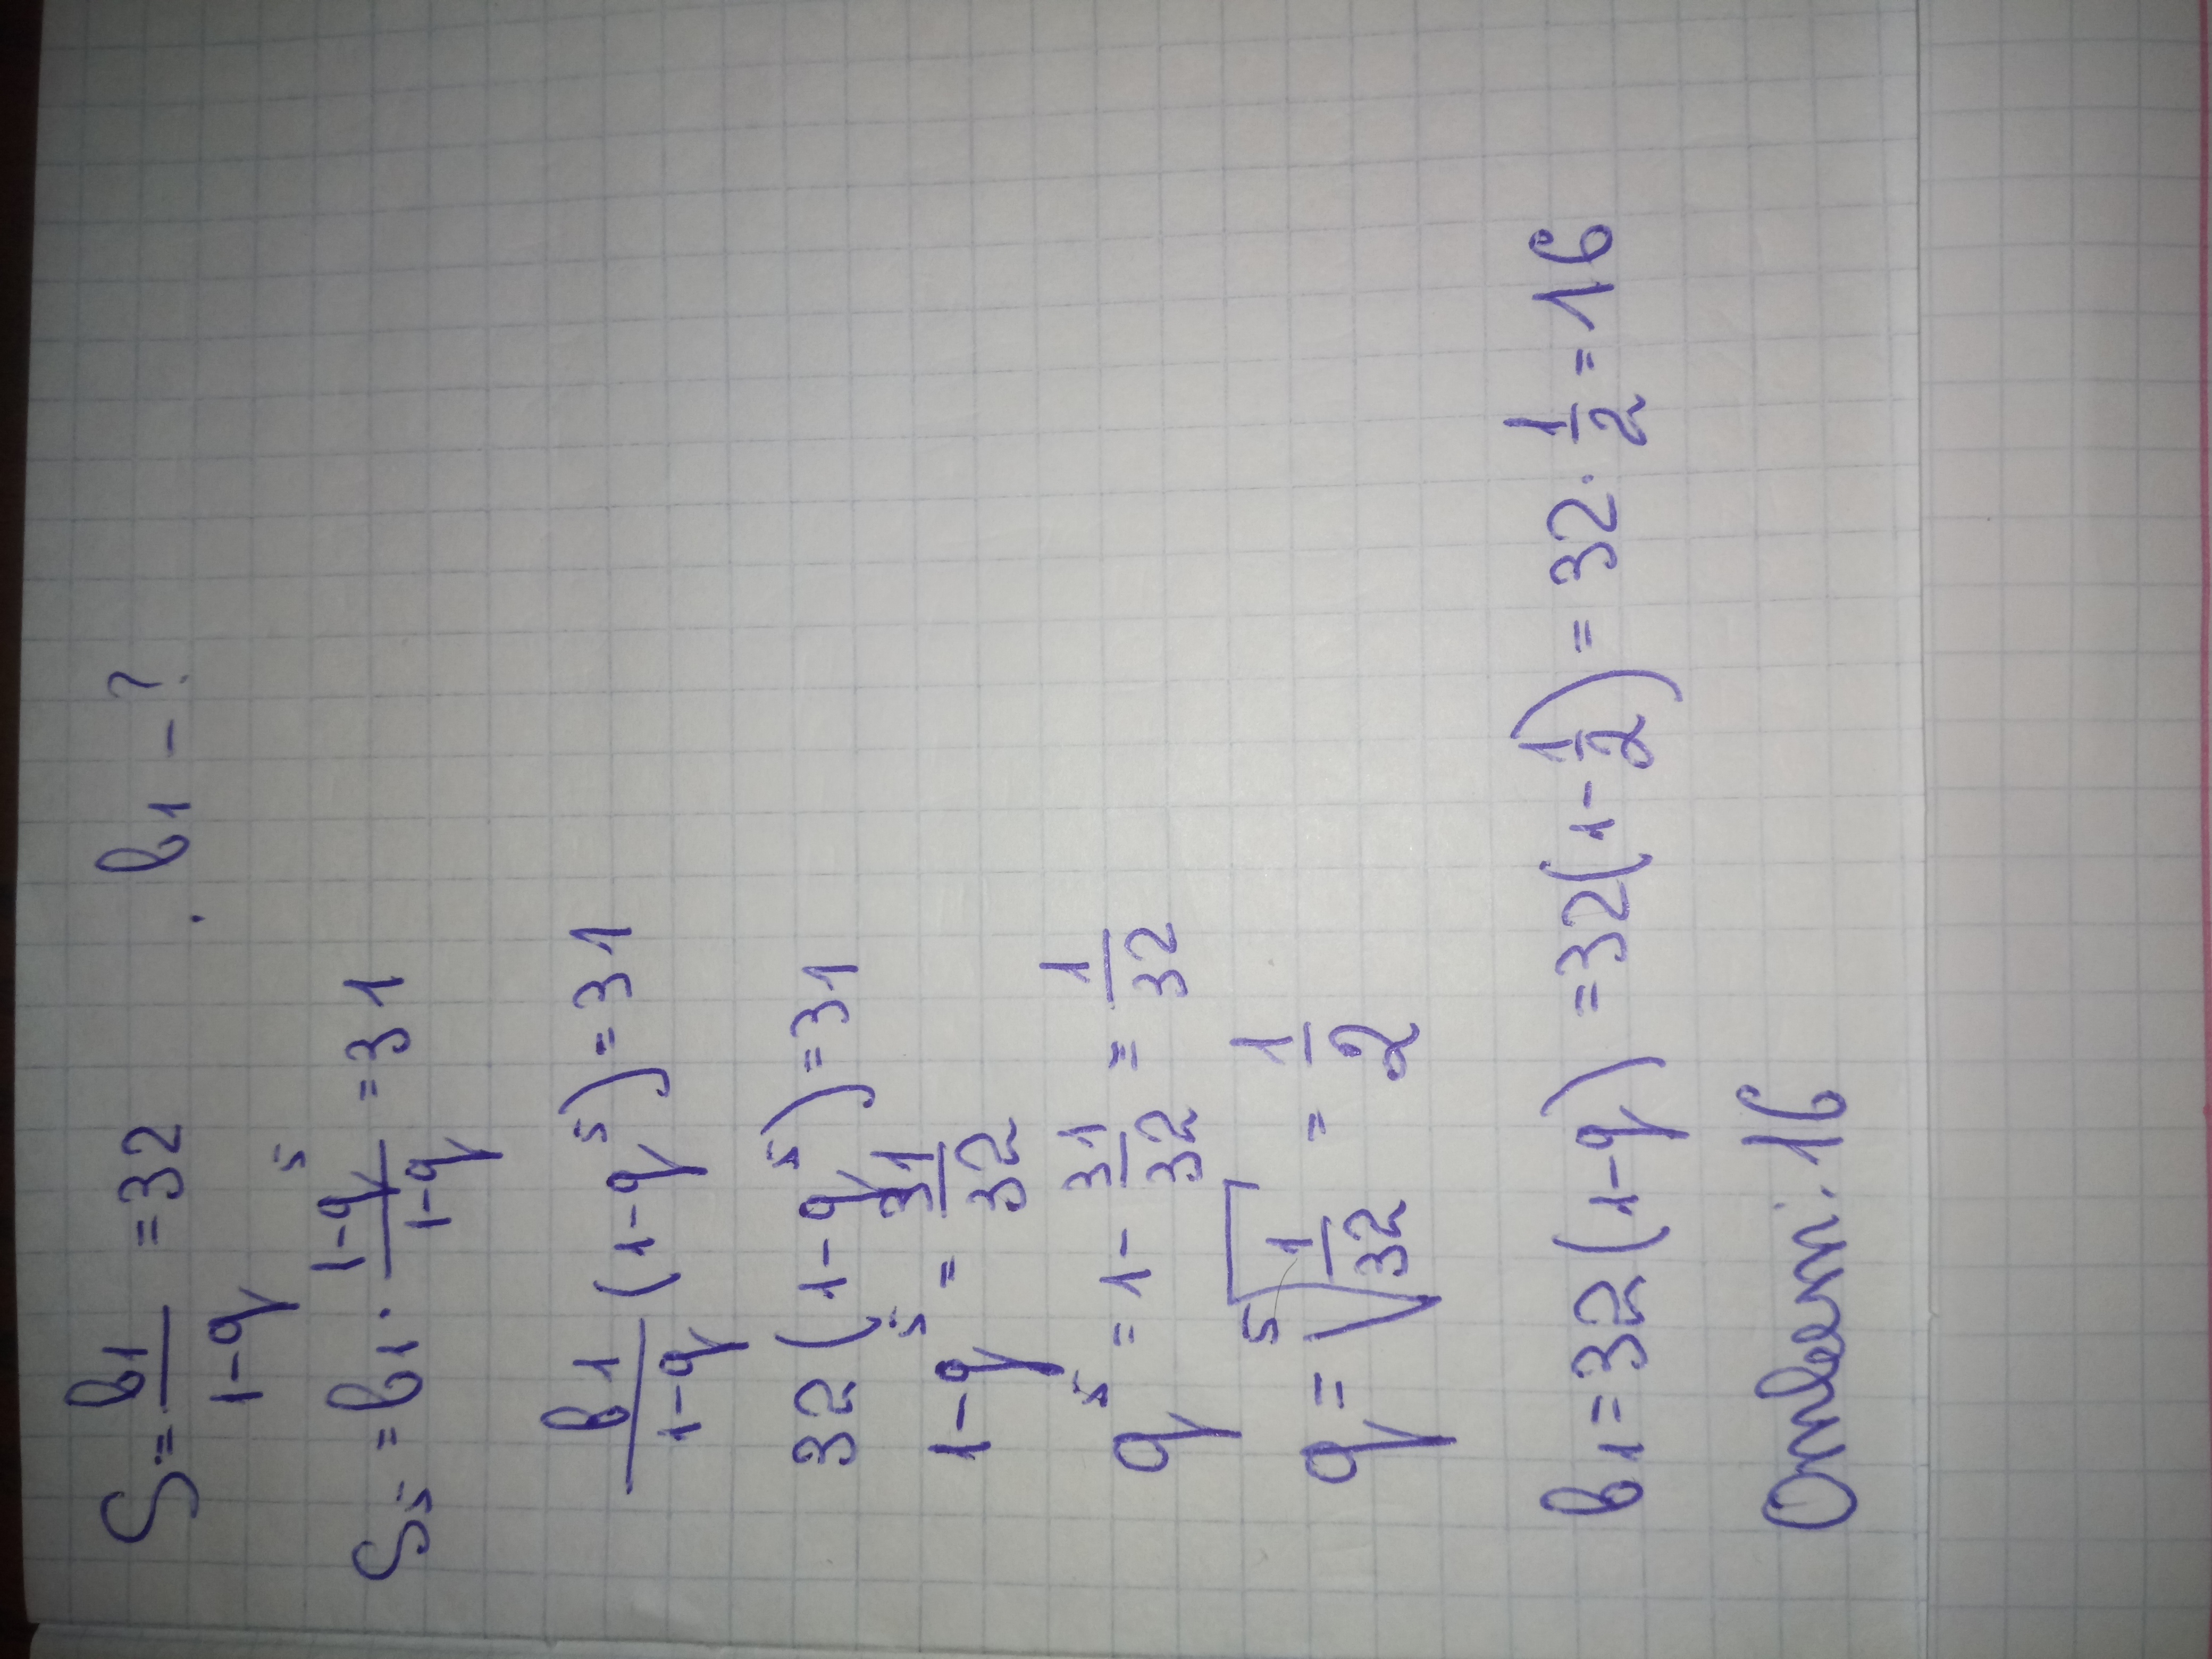 S = b₁/(1-q) = 32 . b₁ - ?
S₅ = b₁ · (1-q⁵)/(1-q) = 31
b₁/(1-q) (1-q⁵) = 31
32(1-q⁵) = 31
1-q⁵ = 31/32
q⁵ = 1 - 31/32 = 1/32
q = ⁵√(1/32) = 1/2
b₁ = 32(1-q) = 32(1-1/2) = 32 · 1/2 = 16
Ответ: 16